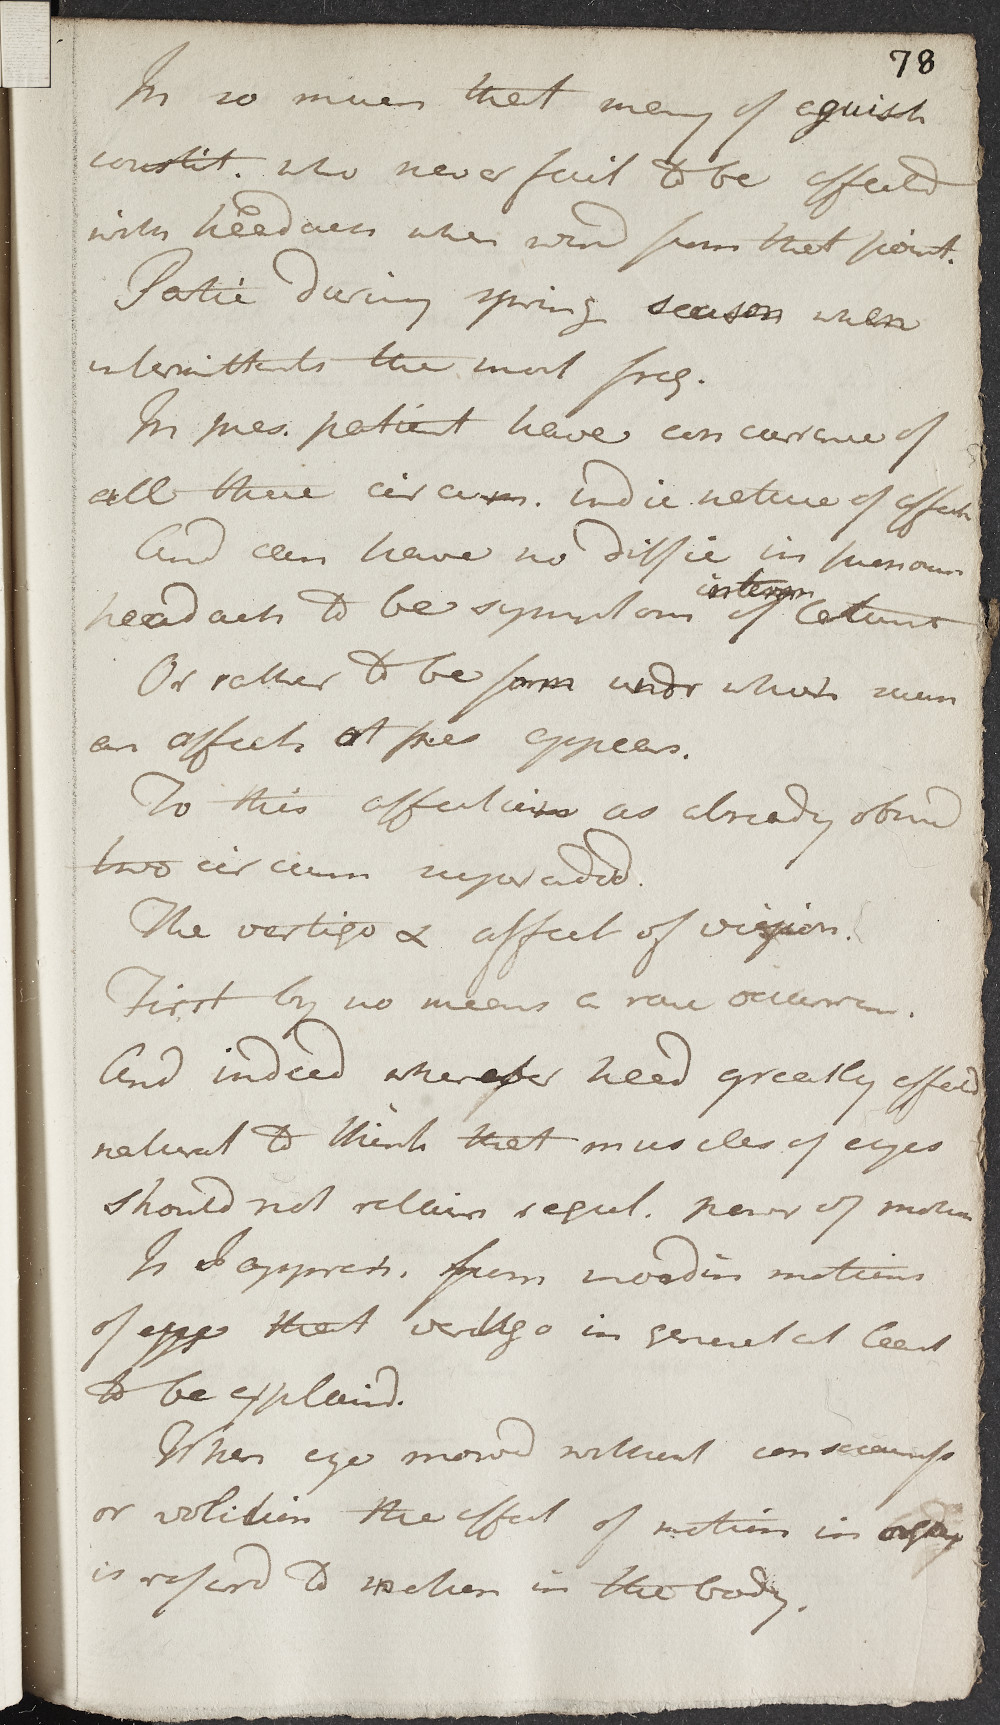 78
In so much that many of aguish
constit. who never fail to be affected
with headach when wind from that point.
Partic during spring season when
intermittents the most freq.
In pres. patient have concurrence of
all these circum. indic nature of affect
And can have no diffic in pronoun
interm
headach to be symptom of latent
Or rather to be form under which such
an affect at pres appears.
To this affection as already obsrvd
two circum superadded.
The vertigo & affect of vision.
First by no means a rare occurren.
And indeed wherever head greatly affectd
natural to think that muscles of eyes
should not retain regul. power of motion
Is I appreh. from inordin motions
of eyes that vertigo in general at least
to be explaind.
When eye movd without consciousness
or volition the effect of motion in organ
is referd to motion in the body.